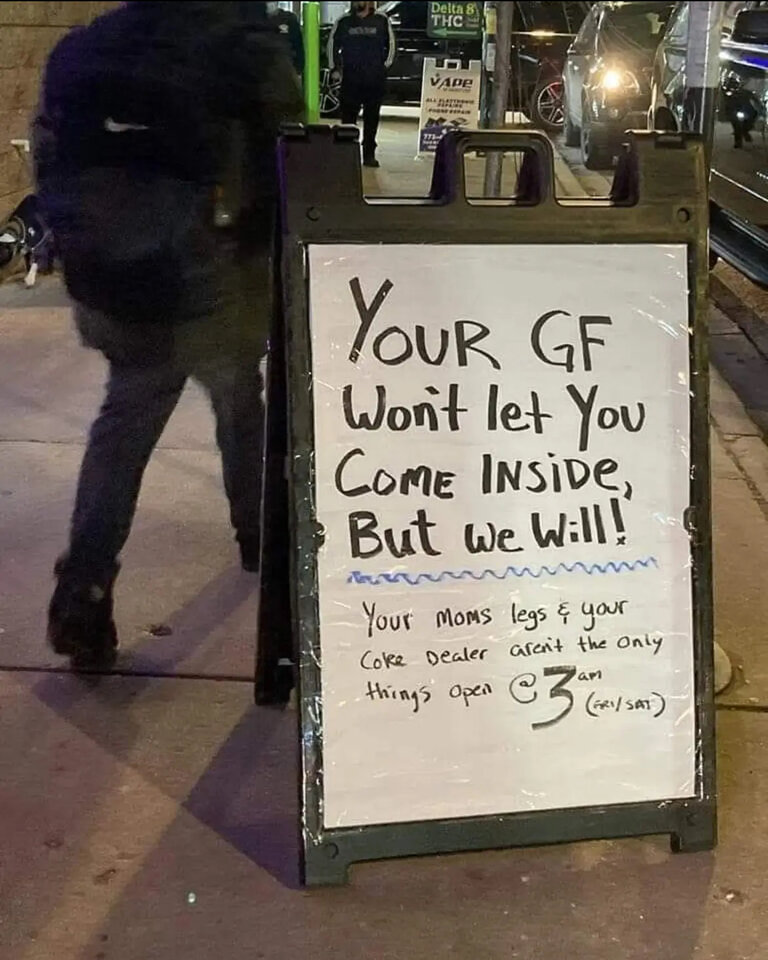 Delta 8
THC
VAPE
ALL ELECTRONIC
REPAIRS
PHONE REPAIR
YOUR GF
Won't let You
COME INSIDE,
But we Will!
Your moms legs & your
Coke Dealer aren't the only
things open @3am
(FRI/SAT)